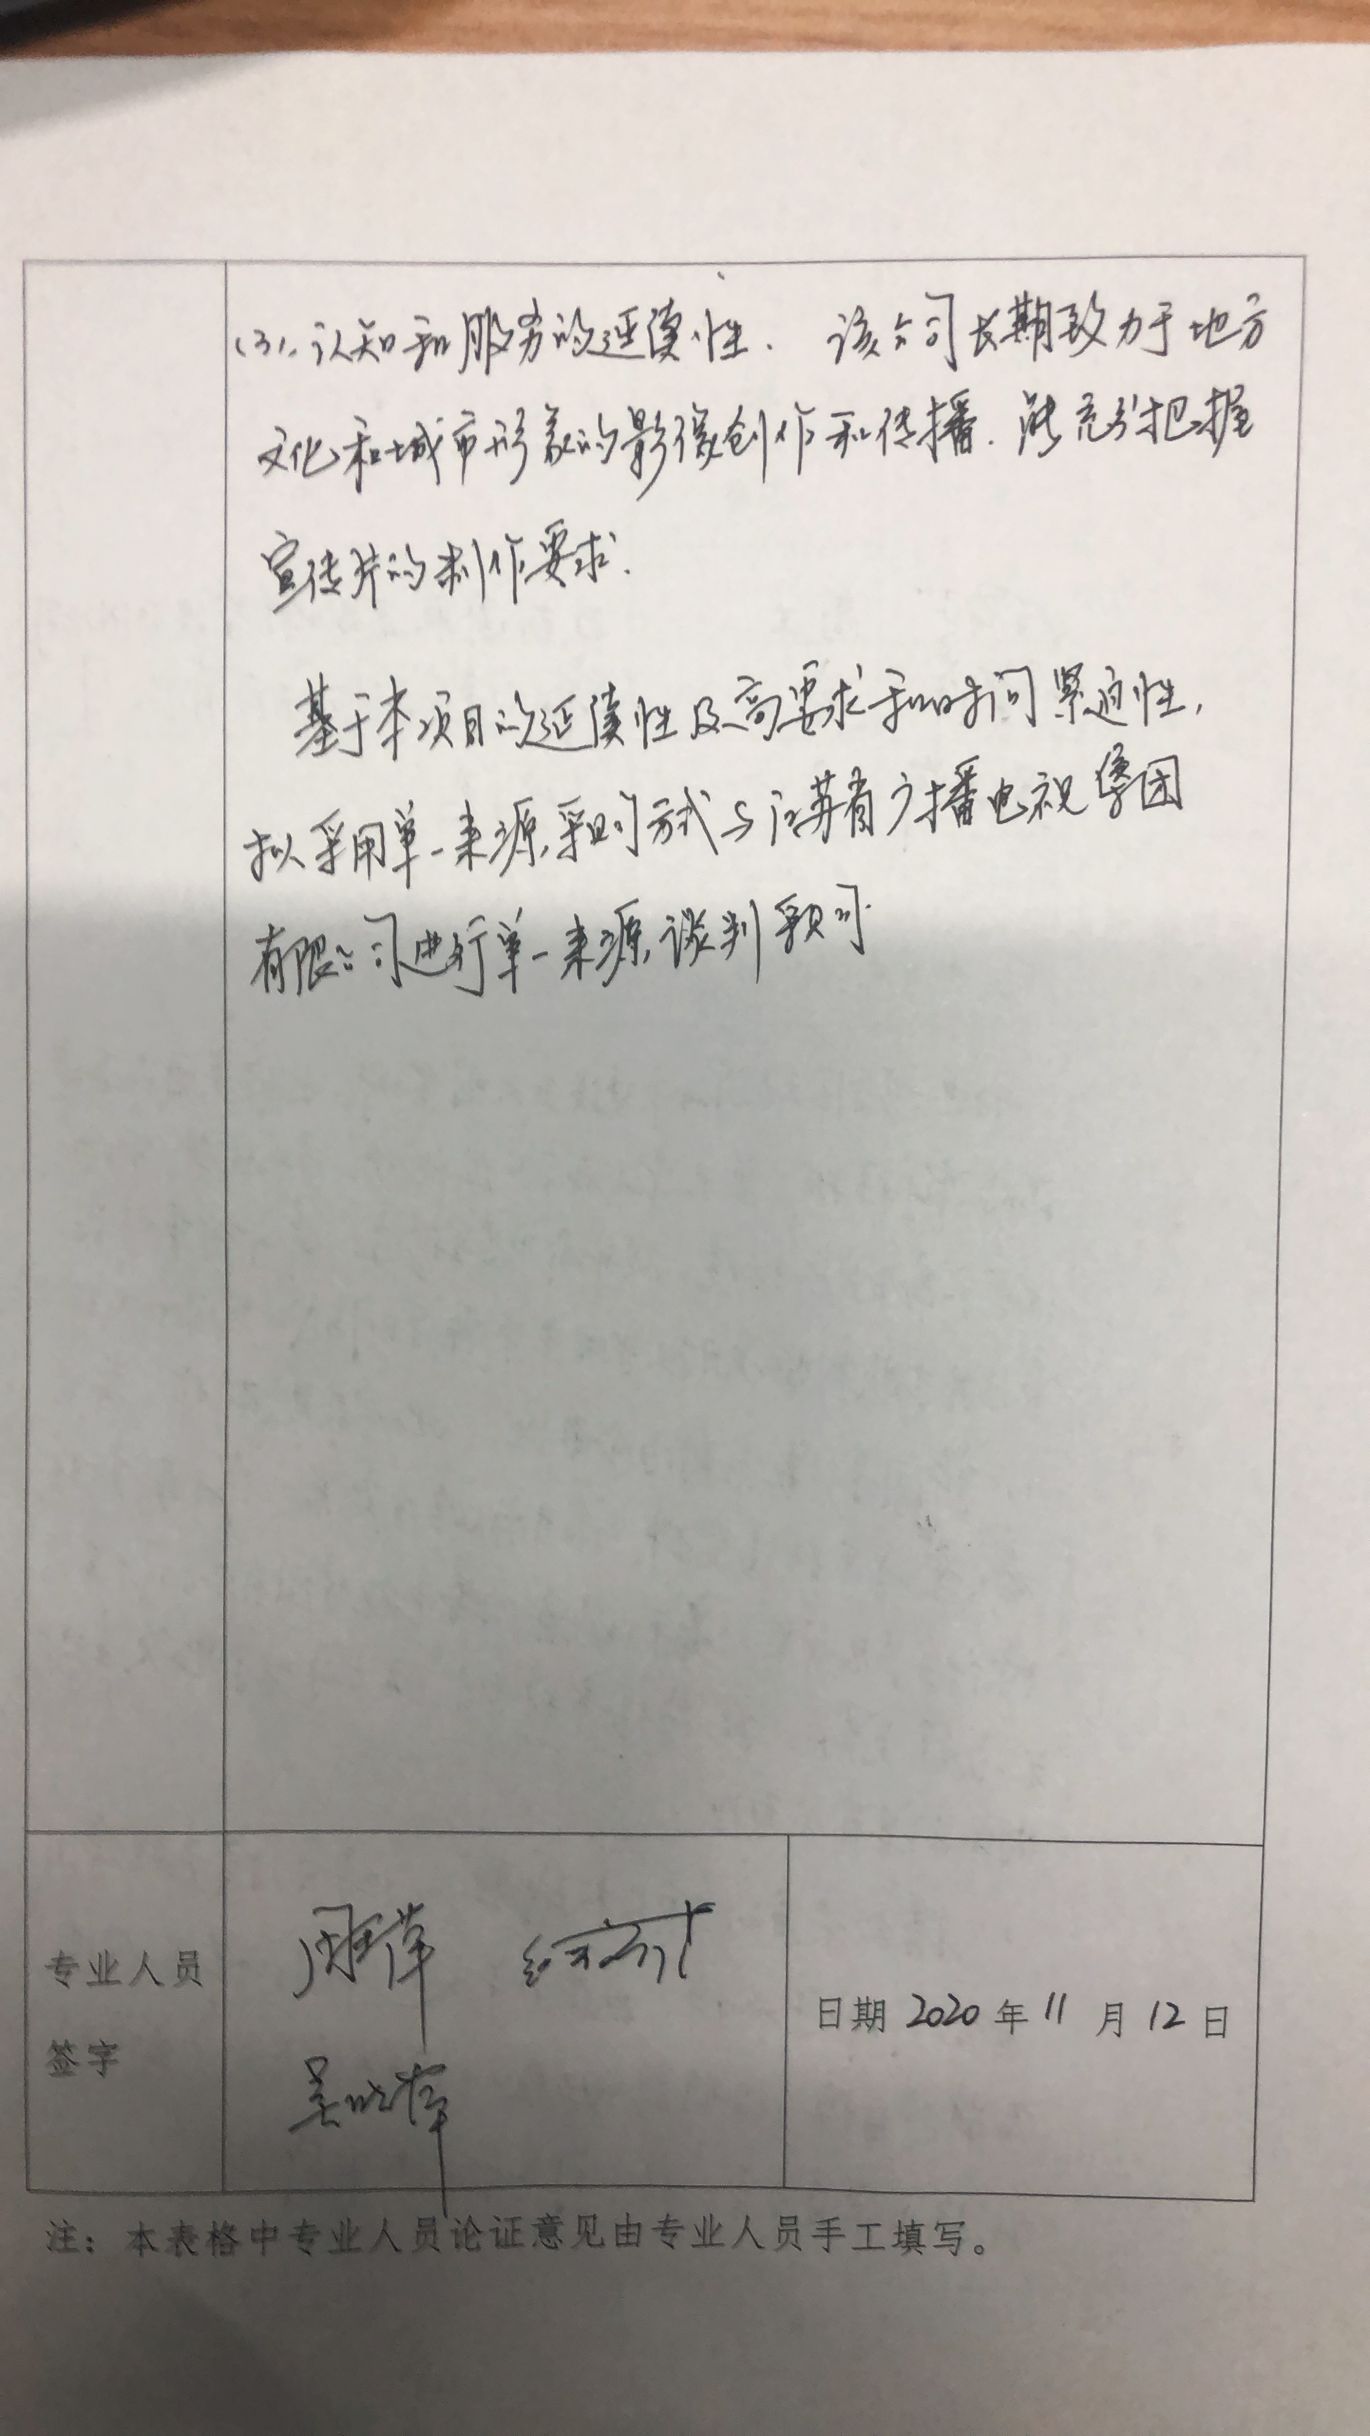 (3). 认知和服务的延续性. 该公司长期致力于地方
文化和城市形象的影像创作和传播. 能充分把握
宣传片的制作要求.
基于本项目的延续性及高要求和时间紧迫性,
拟采用单一来源采购方式与江苏省广播电视集团
有限公司进行单一来源谈判采购.
专业人员
签字
日期 2020 年 11 月 12 日
注：本表格中专业人员论证意见由专业人员手工填写。